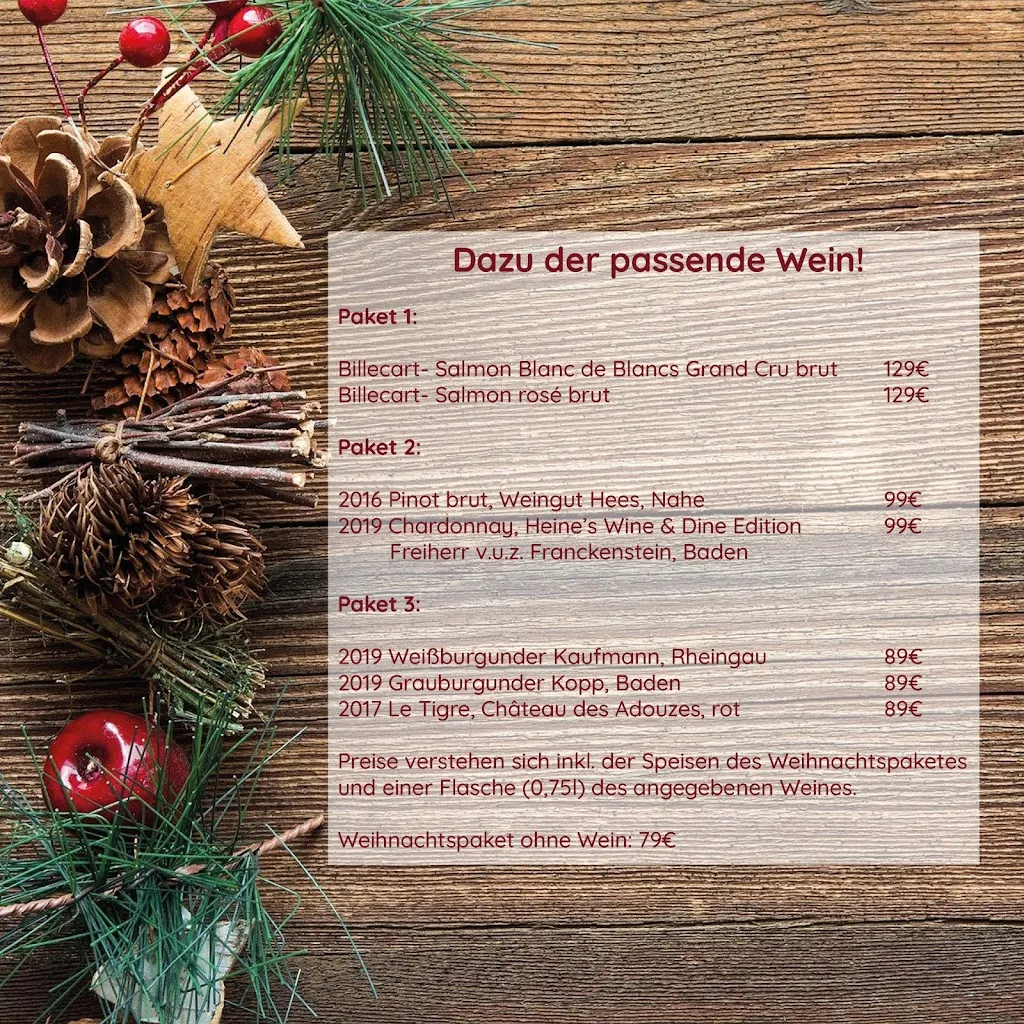 Dazu der passende Wein!
Paket 1:
Billecart- Salmon Blanc de Blancs Grand Cru brut 129€
Billecart- Salmon rosé brut 129€
Paket 2:
2016 Pinot brut, Weingut Hees, Nahe 99€
2019 Chardonnay, Heine's Wine & Dine Edition 99€
Freiherr v.u.z. Franckenstein, Baden
Paket 3:
2019 Weißburgunder Kaufmann, Rheingau 89€
2019 Grauburgunder Kopp, Baden 89€
2017 Le Tigre, Château des Adouzes, rot 89€
Preise verstehen sich inkl. der Speisen des Weihnachtspaketes
und einer Flasche (0,75l) des angegebenen Weines.
Weihnachtspaket ohne Wein: 79€